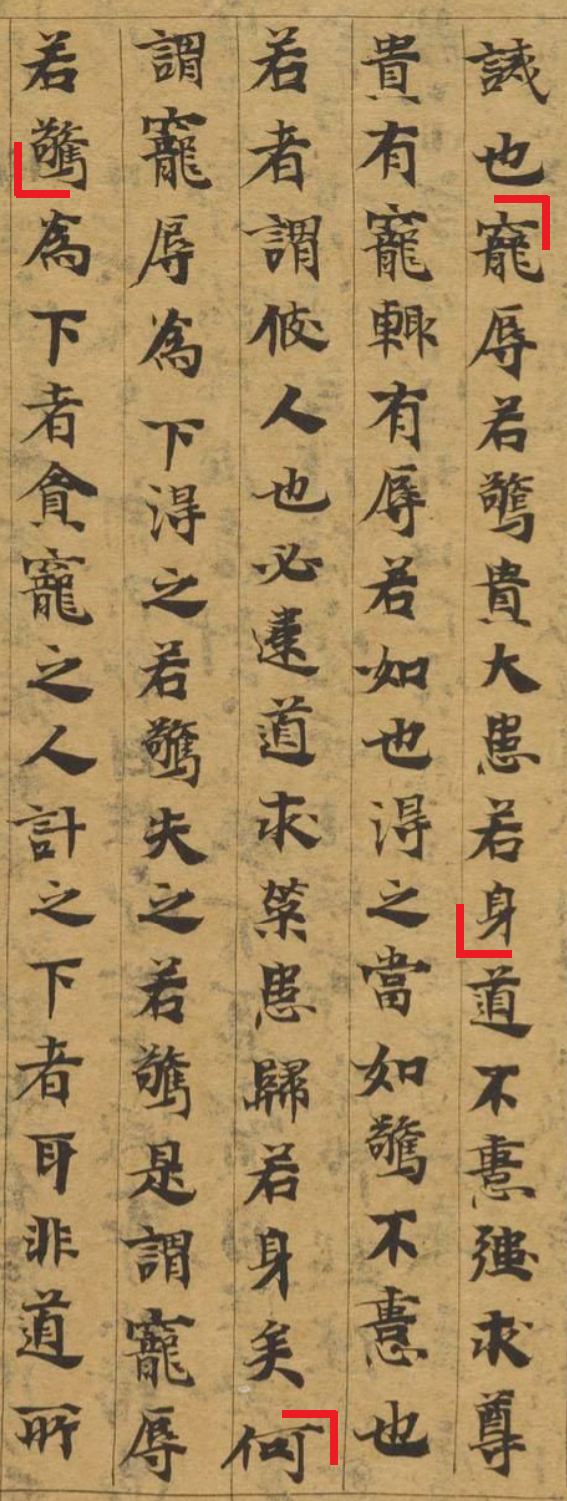 誡也寵辱若驚貴大患若身道不憙强求尊
貴有寵輙有辱若如也得之當如驚不憙也
若者謂彼人也必違道求榮患歸若身矣何
謂寵辱為下得之若驚失之若驚是謂寵辱
若驚為下者貪寵之人計之下者耳非道所